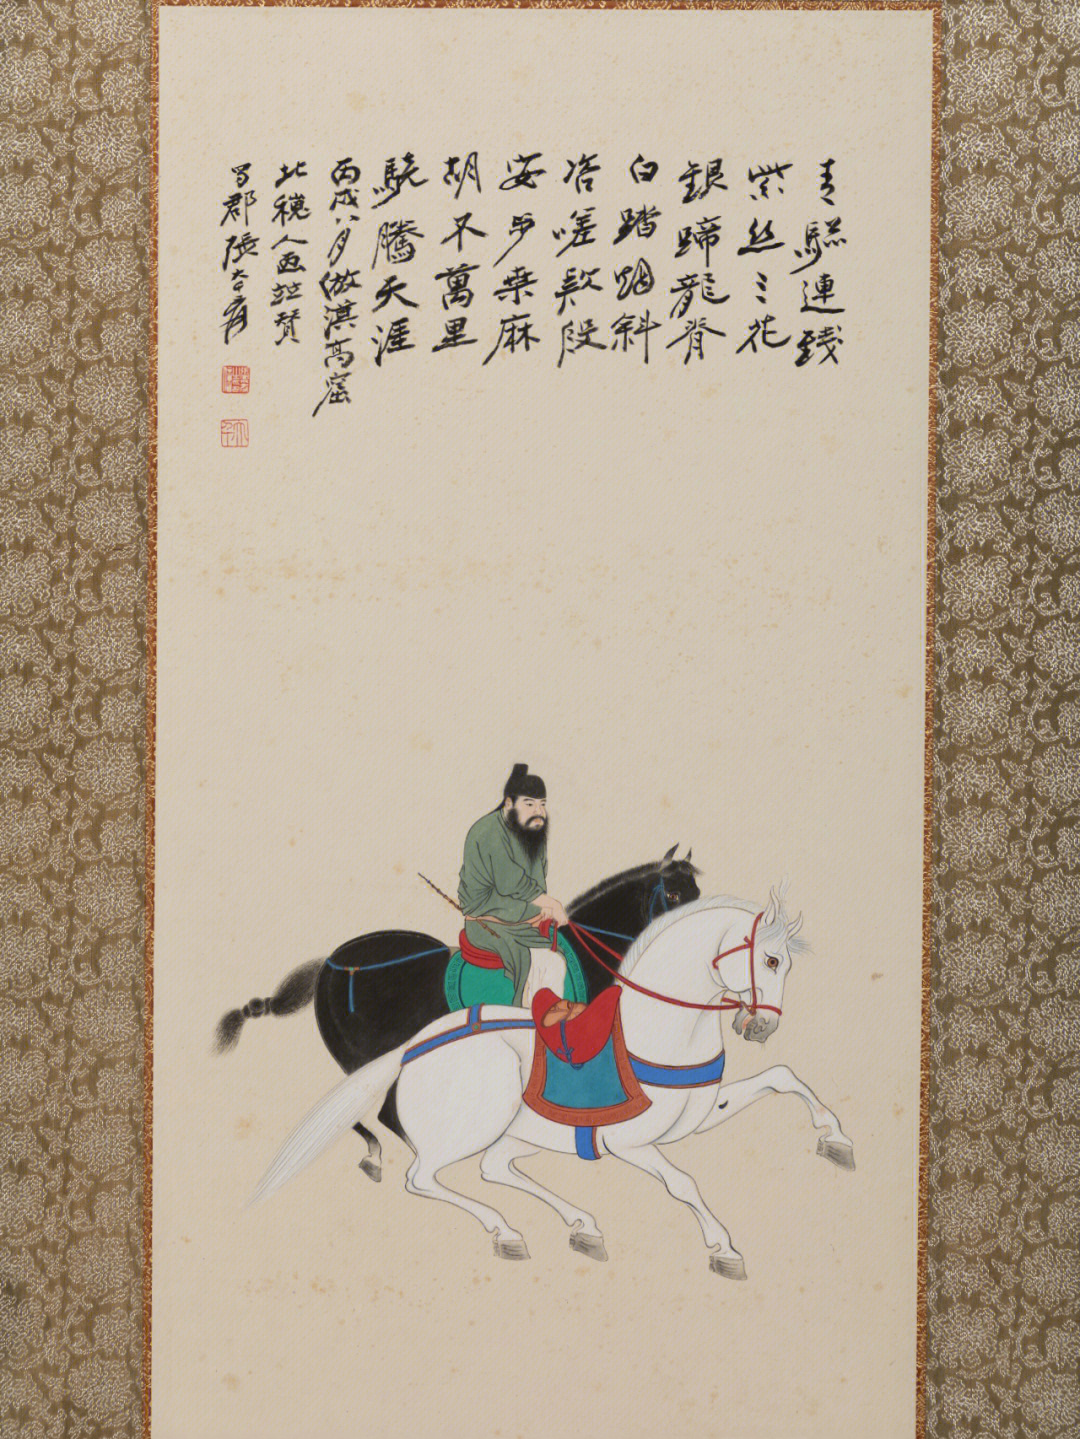 青驄連錢
紫絲三花
銀蹄龍脊
白踏烟斜
咨嗟款段
安步桑麻
胡不萬里
驍騰天涯
丙戌八月倣漠高窟
北魏人画並贊
蜀郡張大千爰